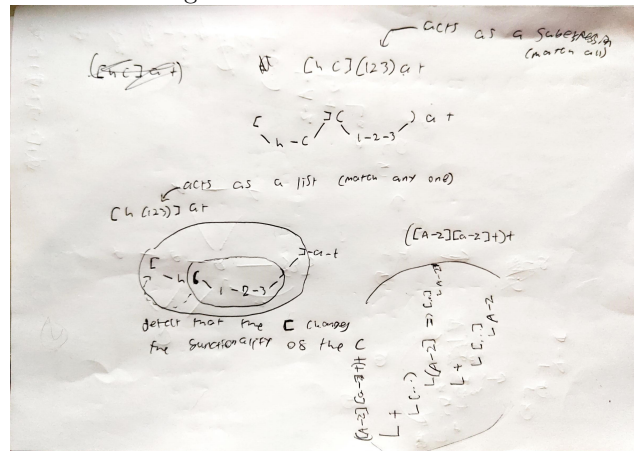 acts as a subexpression
(match all)
([hc]at)
[hc](123)at
[ ]( ) at
h-c 1-2-3
acts as a list (match any one)
[h(123)]at
([A-Z][a-z]+)+
[ ]-a-t
h ( 1-2-3
detect that the [ changes
the functionality of the (
([A-Z][a-z]+)+
L +
L (...)
L [A-Z] => [..]
L A-Z
L +
L [...]
L A-Z